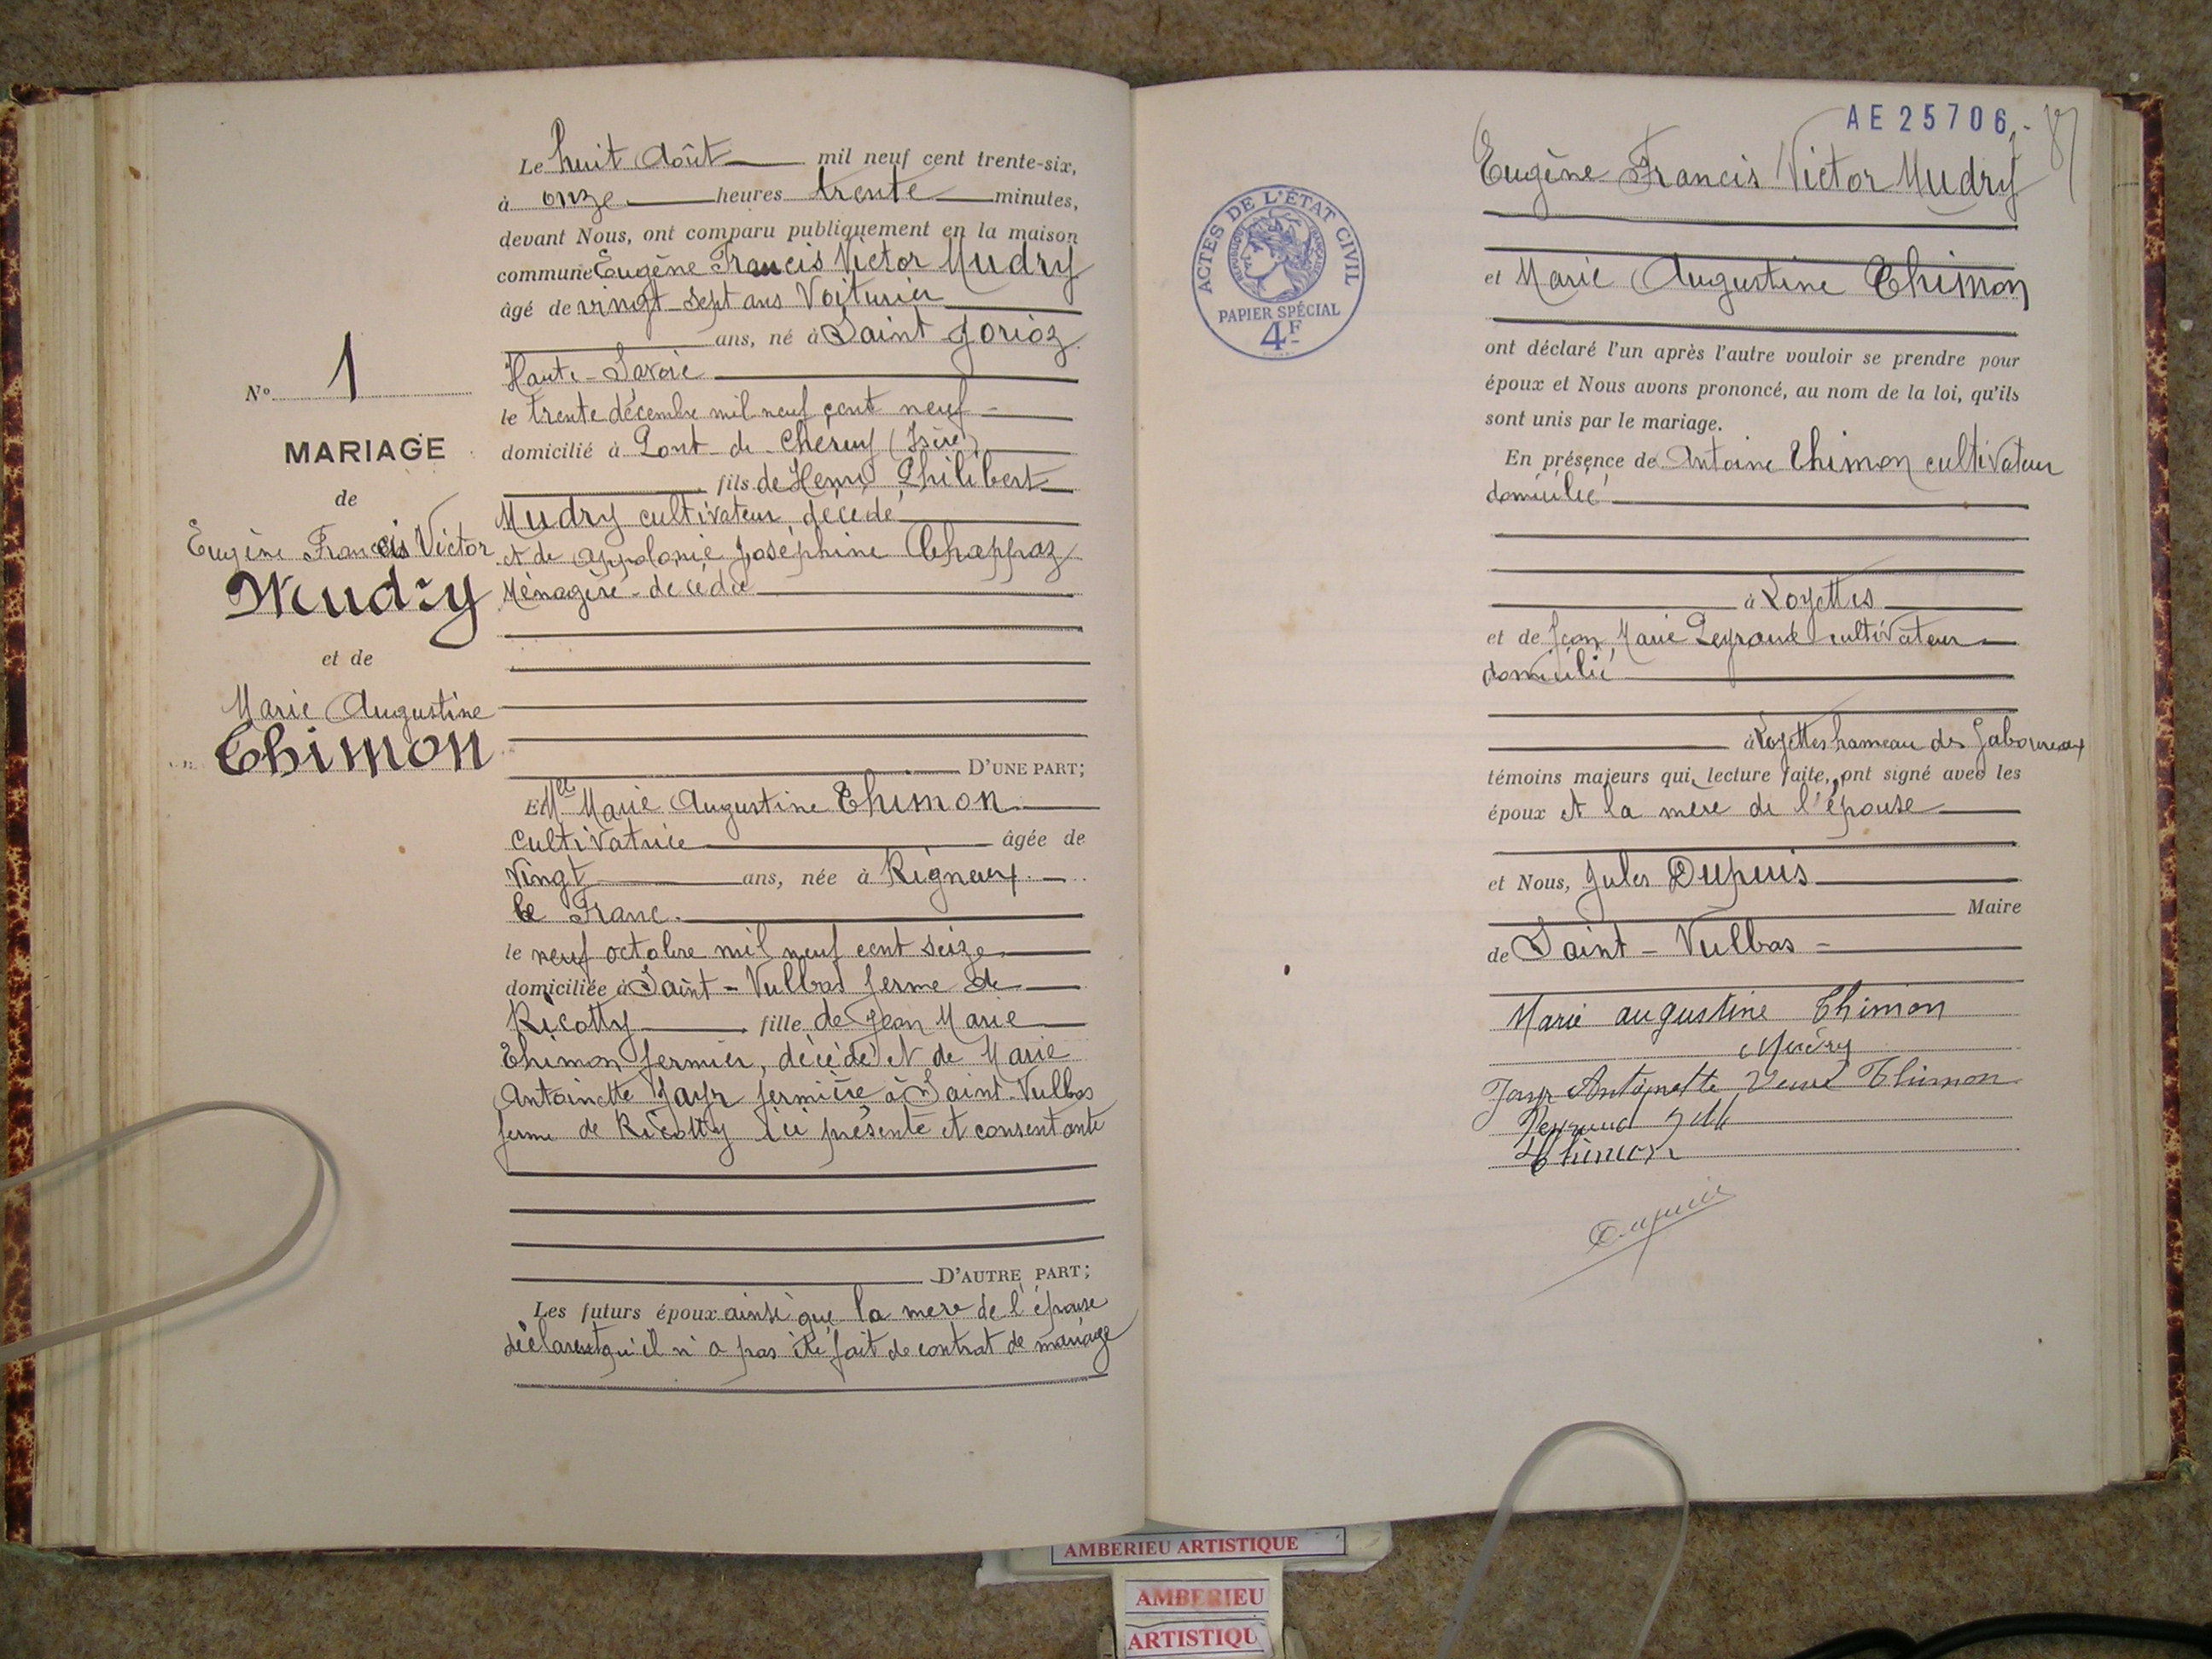 Le huit Août mil neuf cent trente-six,
à onze heures trente minutes,
devant Nous, ont comparu publiquement en la maison
commune Eugène Francis Victor Mudry
âgé de vingt-sept ans Voiturier
ans, né à Saint Jorioz
Haute-Savoie
le trente décembre mil neuf cent neuf -
domicilié à Pont-de-Cheruy (Isère)
fils de Henri Philibert
Mudry cultivateur décédé
et de Appolonie Joséphine Chappaz
Ménagère - décédée
D'UNE PART;
Et Mlle Marie Augustine Thimon
cultivatrice âgée de
vingt ans, née à Rigneux
le Franc.
le neuf octobre mil neuf cent seize
domiciliée à Saint-Vulbas ferme de
Ricotty fille de Jean Marie
Thimon fermier, décédé et de Marie
Antoinette Jayr fermière à Saint-Vulbas
ferme de Ricotty ici présente et consentante
D'AUTRE PART;
Les futurs époux ainsi que la mere de l'épouse
déclarent qu'il n'a pas été fait de contrat de mariage
No 1
MARIAGE
de
Eugène Francis Victor
Mudry
et de
Marie Augustine
Thimon
AE 25706
Eugène Francis Victor Mudry
et Marie Augustine Thimon
ont déclaré l'un après l'autre vouloir se prendre pour
époux et Nous avons prononcé, au nom de la loi, qu'ils
sont unis par le mariage.
En présence de Antoine Thimon cultivateur
domicilié
à Loyettes
et de Jean Marie Peyraud cultivateur
domicilié
à Loyettes hameau des Gaboureaux
témoins majeurs qui, lecture faite, ont signé avec les
époux et la mere de l'épouse
et Nous, Jules Dupuis
Maire
de Saint-Vulbas -
Marie augustine Thimon
Mudry
Jayr Antoinette Veuve Thimon
Peyraud
Thimon
Dupuis
ACTES DE L'ÉTAT CIVIL
REPUBLIQUE FRANÇAISE
PAPIER SPÉCIAL
4F
AMBERIEU ARTISTIQUE
AMBERIEU
ARTISTIQU